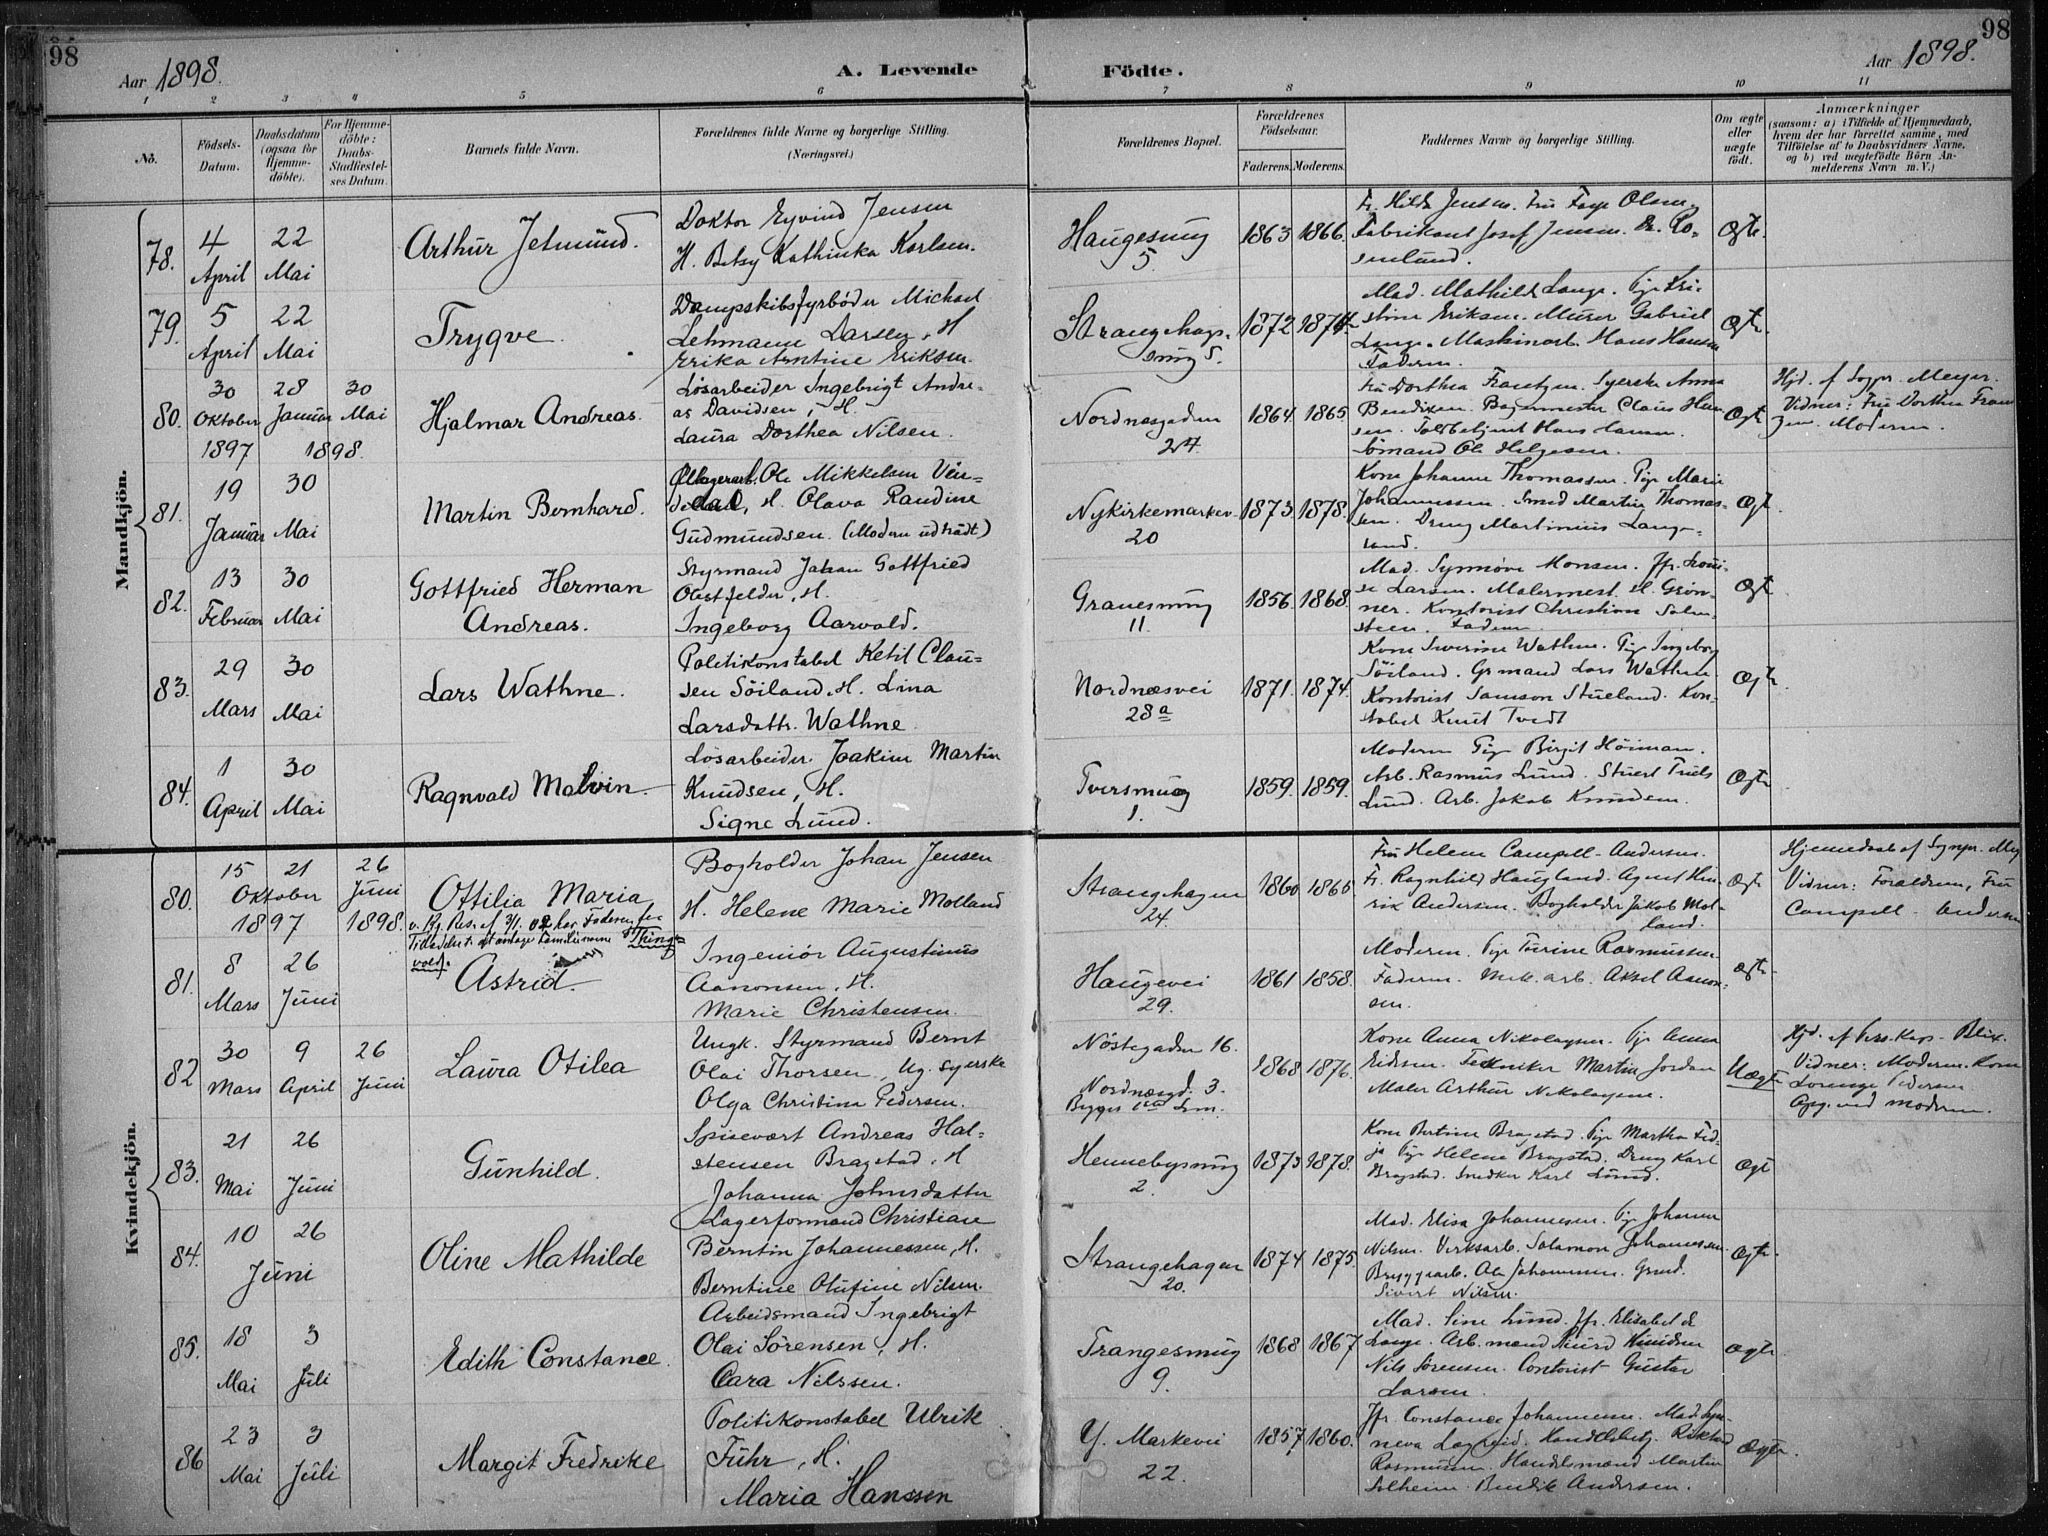 98
98
Aar 1898.
A. Levende
Födte.
Aar 1898.
1 2 3 4 5 6 7 8 9 10 11
No.
Födsels-
Datum.
Daabsdatum
(ogsaa for
Hjemme-
döbte).
For Hjemme-
döbte:
Daabs-
Stadfæstel-
ses Datum.
Barnets fulde Navn.
Forældrenes fulde Navne og borgerlige Stilling.
(Næringsvei.)
Forældrenes Bopæl.
Forældrenes
Födselsaar.
Faderens. Moderens.
Faddernes Navne og borgerlige Stilling.
Om ægte
eller
uægte
födt.
Anmærkninger
(saasom: a) i Tilfælde af Hjemmedaab,
hvem der har forrettet samme, med
Tilföielse af to Daabsvidners Navne,
og b) ved uægtefödte Börn An-
melderens Navn m. V.)
Mandkjön.
78.
4 April
22 Mai
Arthur Jelmund.
Doktor Eyvind Jensen
H. Betsy Kathinka Karlsen.
Haugesmug
5.
1863 1866.
Fr. Hilda Jensen. Fru Olsen,
Fabrikant Josef Jensen. Ro-
senlund.
Ægte.
79.
5 April
22 Mai
Trygve.
Dampskibsfyrbøder Michael
Lehmann Larsen, H.
Erika Arntine Eriksen.
Strangehags-
smug 5.
1872 1874
Mad. Mathilde Lange. Pige Kri-
stine Eriksen. Murer Gabriel
Lange. Maskinarb. Hans Hansen
Faderen.
Ægte.
80.
30 Oktober 1897
28 Januar
30 Mai
1898.
Hjalmar Andreas.
Løsarbeider Ingebrigt Andre-
as Davidsen, H.
Laura Dorthea Nilsen.
Nordnæsgaden
24.
1864. 1865.
Fru Dorthea Frantzen. Syerske Anna
Bendixen. Bagermester Claus Han-
sen. Toldbetjent Hans Hansen.
Sømand Ole Helgesen.
Ægte
Hjd. af Sogpr. Meyer.
Vidner: Fru Dorthea Frant-
zen. Moderen.
81.
19 Januar
30 Mai
Martin Bernhard.
Øllagerarb. Ole Mikkelsen Vin-
H. Olava Randine
Gudmundsen. (Modern udtrådt)
Nykirkemarkev.
20
1873. 1878.
Kone Johanne Thomassen. Pige Marie
Johannessen. Smed Martin Thomas-
sen. Dreng Martinius Lange-
land.
Ægt.
82.
13 Februar
30 Mai
Gottfried Herman
Andreas.
Styrmand Johan Gottfried
Obstfelder, H.
Ingeborg Aarvold.
Granesmug
11.
1856. 1868.
Mad. Synnøve Monsen. Jfr. Loui-
se Larsen. Malermest. H. Grøn-
ner. Kontorist Christian
Faderen.
Ægt.
83.
29 Mars
30 Mai
Lars Wathne.
Politikonstabel Ketil Clau-
sen Söiland, H. Lina
Larsdattr. Wathne.
Nordnæsvei
28a
1871. 1874.
Kone Severine Wathne. Pige Ingeborg
Söiland. Grmand Lars Wathne
Kontorist Samson Stueland. Kon-
stabel Knut Tvedt
Ægte.
84.
1 April
30 Mai
Ragnvald Malvin.
Løsarbeider Joakim Martin
Knudsen, H.
Signe Lund.
Tversmug
1.
1859. 1859.
Moderen Pige Birgit Höiman.
Arb. Rasmus Lund. Stuert Truls
Lund. Arb. Jakob Knudsen.
Ægte
Kvindekjön.
80.
15 21
Oktober
1897
26 Juni
1898.
Ottilia Maria,
v. Kg. Res. af 3/1.02 har Faderen faaet
Tilladelse t. at antage Familienavne "Things-
vold".
Bogholder Johan Jensen
H. Helene Marie Molland
Strangehagen
24.
1860 1865
Fru Helene Campell-Andersen.
Fr. Ragnhild Haugland. Agent Hen-
rik Andersen. Bogholder Jakob Mol-
land.
Ægte
Hjemmedaab af Sognpr. Mey
Vidner: Forældrene, Fru
Campell-Andersen
81.
8 Mars
26 Juni
Astrid.
Ingeniör Augustinus
Aanonsen, H.
Marie Christensen.
Haugevei
29.
1861 1858.
Moderen. Pige Turine Rasmussen
Faderen. Mek. arb. Aksel Aanon-
sen.
Ægte
82
30 Mars
9 April
26 Juni
Laura Otilea
Ungk. Styrmand Bernt
Olai Thorsen, Ug. syerske
Olga Christina Pedersen.
Nöstegaden 16.
Nordnæsgd. 3.
1868 1876.
Kone Anna Nikolaysen. Pige Anna
Eidsen. Tekniker Martin Jordan
Maler Arthur Nikolaysen.
Uægte
Hjd. af Pers. Kap. Blix.
Vidner: Moderen. Kone
Lorenze Pedersen
Apg. ved moderen.
83.
21 Mai
26 Juni
Gunhild.
Spisevært Andreas Hal-
stensen Bragstad, H
Johanna Johnsdatter
Hennebysmug
2.
1873 1878.
Kone Bertine Bragstad. Pige Martha
Pige Helene Bragstad. Dreng Karl
Bragstad. Snedker Karl Lund.
Ægt
84.
10 26
Juni
Oline Mathilde
Lagerformand Christian
Berntin Johannessen, H.
Berntine Olufine Nilsen.
Strangehagen
20.
1874 1875.
Mad. Elisa Johannesen. Pige Johanna
Nilsen. Verksarb. Salamon Johannesen.
Bryggearb. Ole Johannesen. Grmd.
Sivert Nilsen.
Ægte.
85.
18 Mai
3 Juli
Edith Constance.
Arbeidsmand Ingebrigt
Olai Sörensen, H.
Cara Nilssen.
Trangesmug
9.
1868 1867
Mad. Sine Lund. Jfr. Elisabet de
Lange. Arb.mand Knudsen
Nils Sörensen. Contorist Gustav
Larsen.
Ægte.
86
23 Mai
3 Juli
Margit Fredrike
Politikonstabel Ulrik
Fuhr, H.
Maria Hanssen
Y. Markevei
22.
1857 1860.
Jfr. Constance Johannesen. Mad. Syn-
neva Lægreid. Handelsbetj. Rikhard
Rasmussen. Handelsmand Martin
Solheim. Bendik Andersen.
Ægte.